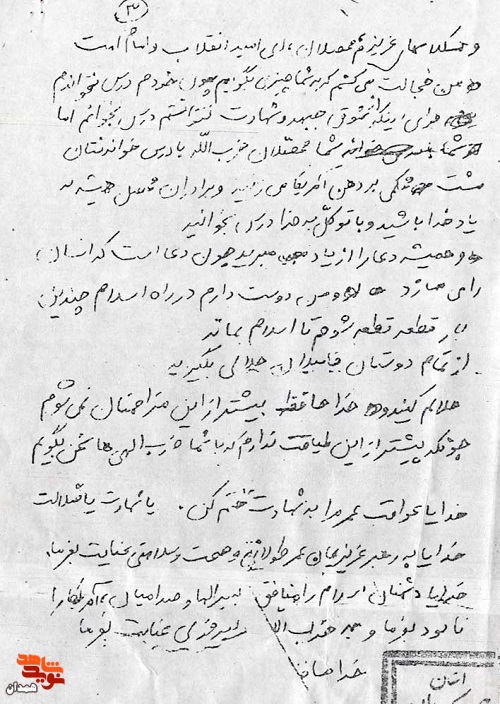 (۳)
و همکلاسهای عزیزم محصلان، ای امید انقلاب و امام امت
من خجالت می‌کشم که به شما چیزی بگویم چون خودم درس نخواندم
برای اینکه از شوق جبهه و شهادت نتوانستم درس بخوانم اما
شما محصلان حزب الله با درس خواندنتان
مشت محکمی بر دهن آمریکا می زنید و برادران محصل همیشه به
یاد خدا باشید و با توکل به خدا درس بخوانید
و همیشه دعا را از یاد مبرید چون دعا است که انسان
را می سازد و من دوست دارم در راه اسلام چندین
بار قطعه قطعه شوم تا اسلام بماند
از تمام دوستان حلالی بگیرید
حلالم کنید بیشتر از این مزاحمتان نمی شوم
چونکه بیشتر از این لیاقت ندارم که با شما حزب الهی ها سخن بگویم
خدایا عواقب عمر مرا به شهادت ختم کن. یا شهادت یا شهادت
خدایا به رهبر عزیزمان عمر طولانی و صحت و سلامتی عنایت بفرما.
خدایا دشمنان اسلام را منافقین لیبرالها و صدامیان، آمریکا را
نابود بفرما و به حزب الله پیروزی عنایت بفرما
خدا حافظ
استان
نوید شاهد
همدان